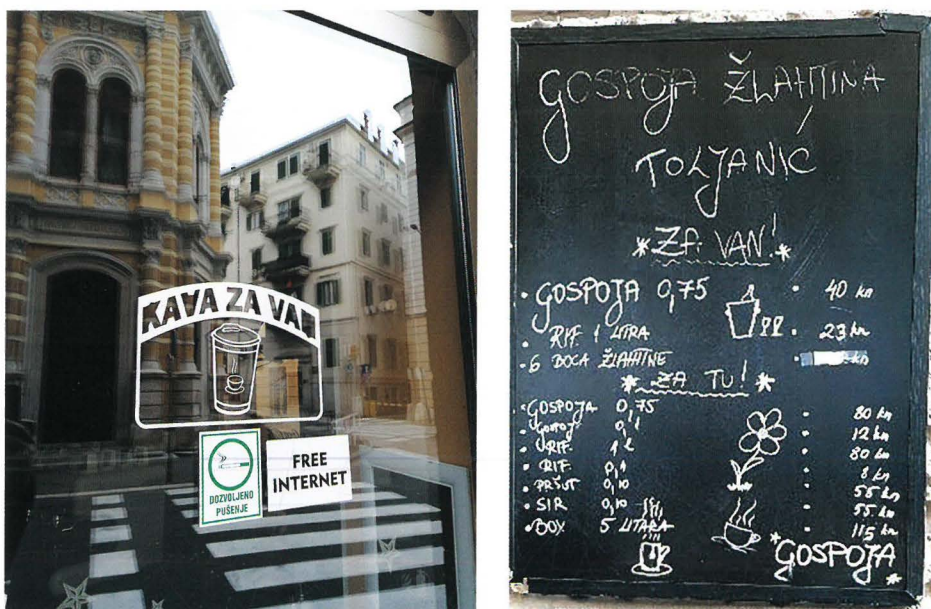 KAVA ZA VAN
DOZVOLJENO
PUŠENJE
FREE
INTERNET
GOSPOJA ŽLAHTINA
TOLJANIĆ
*ZA VAN!*
• GOSPOJA 0,75 • 40 kn
• RIF. 1 LITRA • 23 kn
• 6 BOCA ŽLAHTINE • kn
* ZA TU! *
• GOSPOJA 0,75 • 80 kn
• GOSPOJ 0,1 • 12 kn
• RIF. 1 L • 80 kn
• RIF. 0,1 • 8 kn
• PRŠUT 0,10 • 55 kn
• SIR 0,10 • 55 kn
• BOX 5 LITARA • 115 kn
*GOSPOJA*